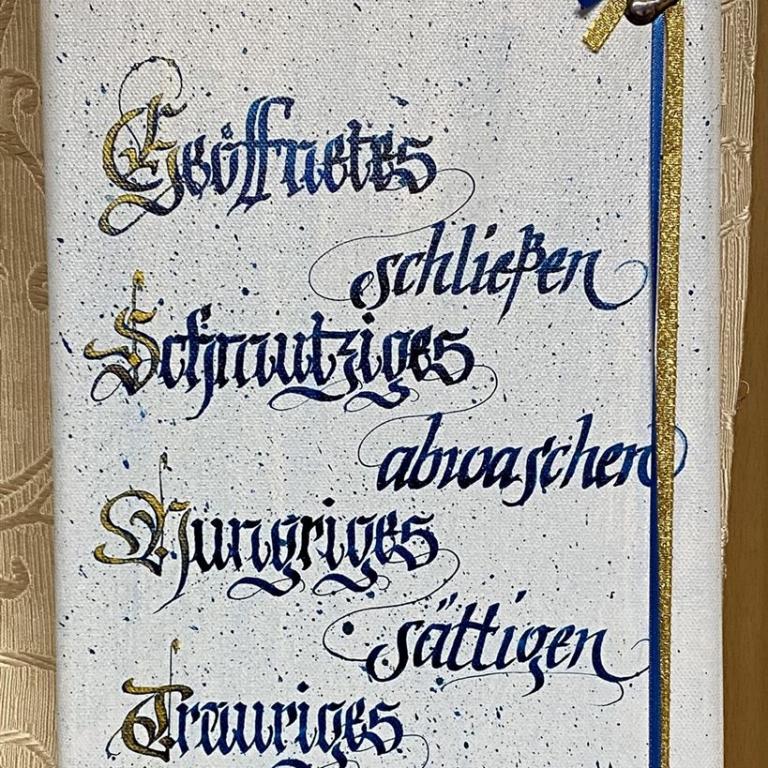 Geöffnetes
schließen
Schmutziges
abwaschen
Hungriges
sättigen
Trauriges